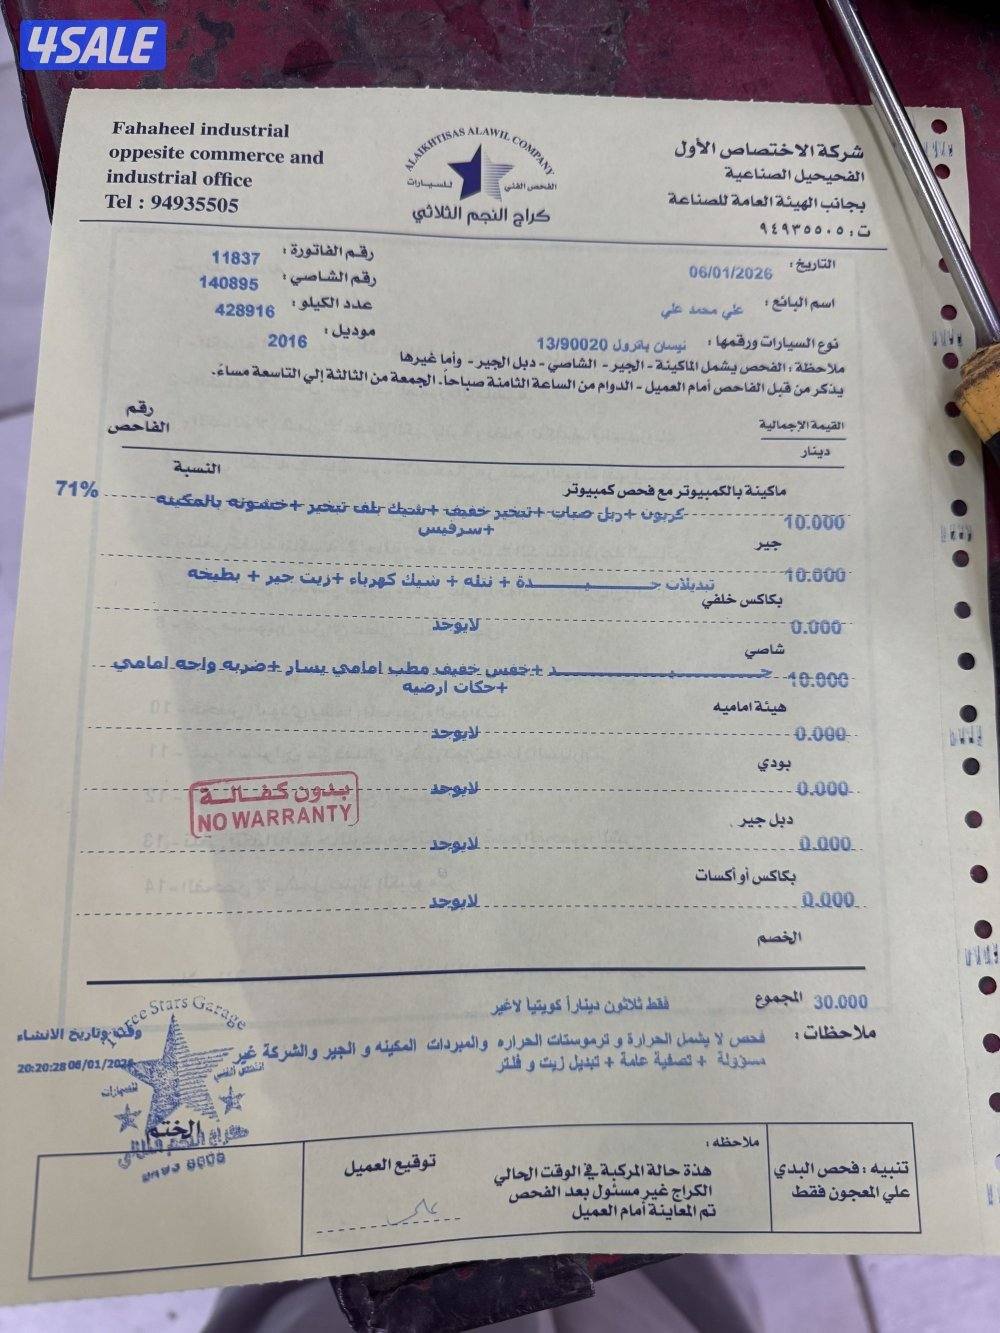 4SALE
Fahaheel industrial
opposite commerce and
industrial office
Tel : 94935505
ALAIKHTISAS ALAWIL COMPANY
الفحص الفني للسيارات
كراج النجم الثلاثي
شركة الاختصاص الأول
الفحيحيل الصناعية
بجانب الهيئة العامة للصناعة
ت: ٩٤٩٣٥٥٠٥
التاريخ: 06/01/2026
رقم الفاتورة: 11837
رقم الشاصي: 140895
اسم البائع: علي محمد علي
عدد الكيلو: 428916
نوع السيارات ورقمها: نيسان باترول 13/90020
موديل: 2016
ملاحظة: الفحص يشمل الماكينة - الجير - الشاصي - دبل الجير - وأما غيرها
يذكر من قبل الفاحص أمام العميل - الدوام من الساعة الثامنة صباحاً - الجمعة من الثالثة إلي التاسعة مساءً.
القيمة الإجمالية
دينار
رقم
الفاحص
النسبة
ماكينة بالكمبيوتر مع فحص كمبيوتر
71%
10.000 كربون + ربل صبات + تبخير خفيف + شيك بلف تبخير + خشونه بالمكينه
+سرفيس
جير
10.000 تبديلات جـــيـــدة + نتله + شيك كهرباء + زيت جير + بطيخه
بكاكس خلفي
0.000 لايوجد
شاصي
10.000 جـــيـــد + خفس خفيف مطب امامي يسار + ضربه واجه امامي
+حكات ارضيه
هيئة اماميه
0.000 لايوجد
بودي
0.000 لايوجد
بدون كفالة
NO WARRANTY
دبل جير
0.000 لايوجد
بكاكس أو أكسات
0.000 لايوجد
الخصم
المجموع 30.000 فقط ثلاثون ديناراً كويتيا لاغير
ملاحظات: فحص لا يشمل الحرارة و ترموستات الحراره والمبردات المكينه و الجير والشركة غير
مسؤولة + تصفية عامة + تبديل زيت و فلتر
وقت وتاريخ الانشاء
20:20:28 06/01/2026
Three Stars Garage
للسيارات
الختم
تنبيه: فحص البدي
علي المعجون فقط
ملاحظه:
هذة حالة المركبة في الوقت الحالي
الكراج غير مسئول بعد الفحص
تم المعاينة أمام العميل
توقيع العميل
علي